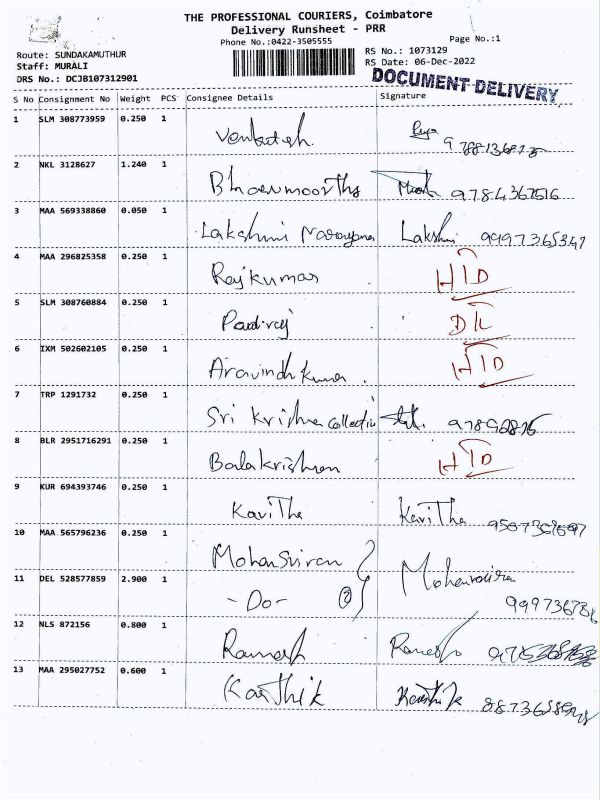 THE PROFESSIONAL COURIERS, Coimbatore
Delivery Runsheet - PRR
Phone No.:0422-3505555
Page No.:1
Route: SUNDAKAMUTHUR
Staff: MURALI
DRS No.: DCJB107312901
RS No.: 1073129
RS Date: 06-Dec-2022
DOCUMENT DELIVERY
S No Consignment No Weight PCS Consignee Details Signature
1 SLM 308773959 0.250 1 Venkatesh
2 NKL 3128627 1.240 1 9784367516
3 MAA 569338860 0.050 1 Lakshmi Narayana Lakshmi 9997365347
4 MAA 296825358 0.250 1 Rajkumar HTD
5 SLM 308760884 0.250 1 DL
6 IXM 502602105 0.250 1 Aravindh Kumar. HTD
7 TRP 1291732 0.250 1 Sri Krishna collection
8 BLR 2951716291 0.250 1 Balakrishnan HTD
9 KUR 694393746 0.250 1 Kavitha Kavitha
10 MAA 565796236 0.250 1
11 DEL 528577859 2.900 1 -Do- 2
12 NLS 872156 0.800 1 Ramesh Ramesh
13 MAA 295027752 0.600 1 Karthik Karthik